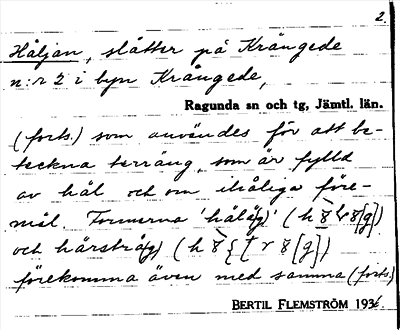 2.
Håljan, slåtter på Krångede
n:r 2 i byn Krångede,
Ragunda sn och tg, Jämtl. län.
(forts.) som användes för att be-
teckna terräng, som är fylld
av hål och om ihåliga före-
mål. Formerna 'hålåg)' (h
och hårstråg) (h
förekomma även med samma (forts.)
BERTIL FLEMSTRÖM 1936.